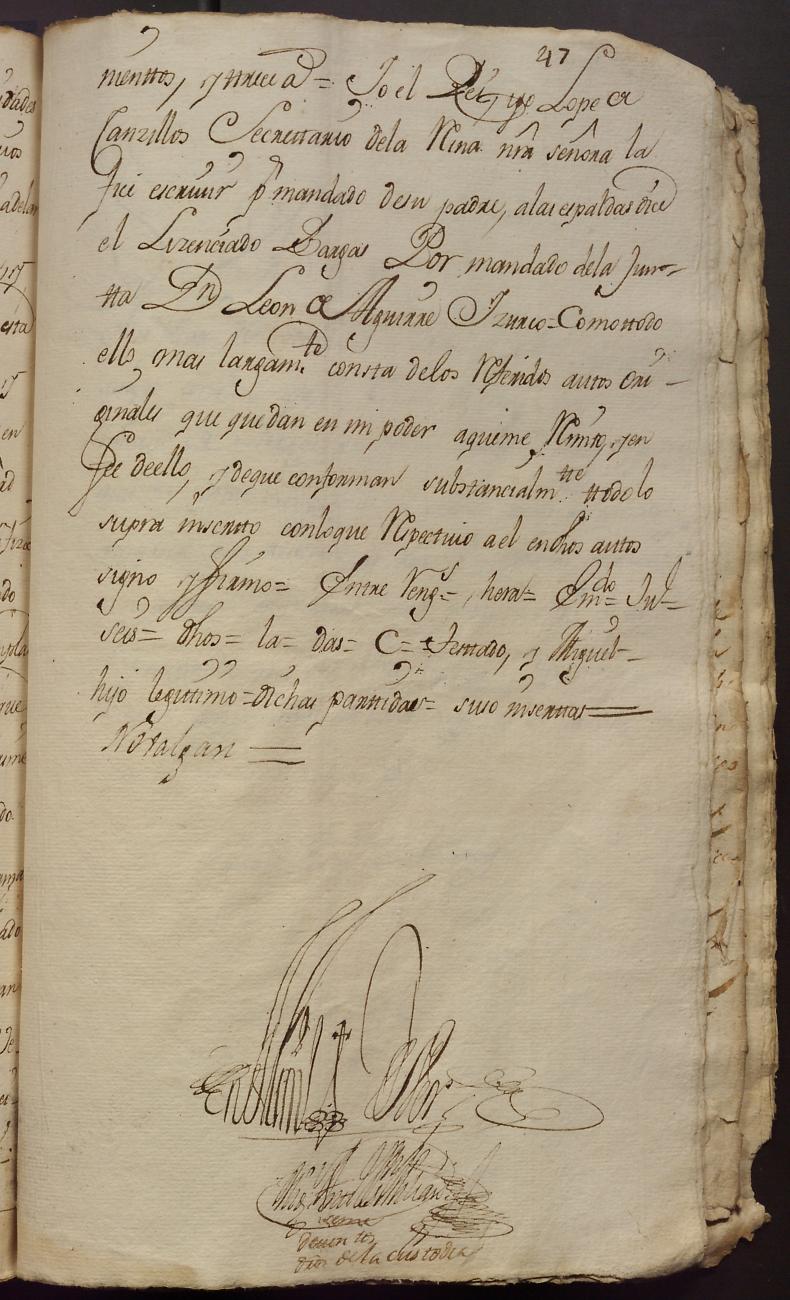 47
mienttos, y ttrece a.s= Yo el Rei, yo Lope de
Canzillos Secrettario dela Rina nrâ señora la
fice escriuir pr mandado desu padre, alas espaldas dice
el Lizenciado Bargas Por mandado dela Jun-
tta Dn Leon de Aguirre Izurco= Como ttodo
ello mas largam.te consta delos Referidos autos ori-
ginales que quedan en mi poder aqueme Rimito, y en
fee deello, y deque conforman substancialm.tte ttodolo
supra inscritto conloque Respectivo ael endhos autos
signo y firmo= Entre Reng.s=, hera= Em.do=
seis= dhos= la= das= C= Testtado, y Miguel-
hijo legittimo= dichas parttidas= suso insertas
No valgan
En testim.o de Ver.d
dela custodia